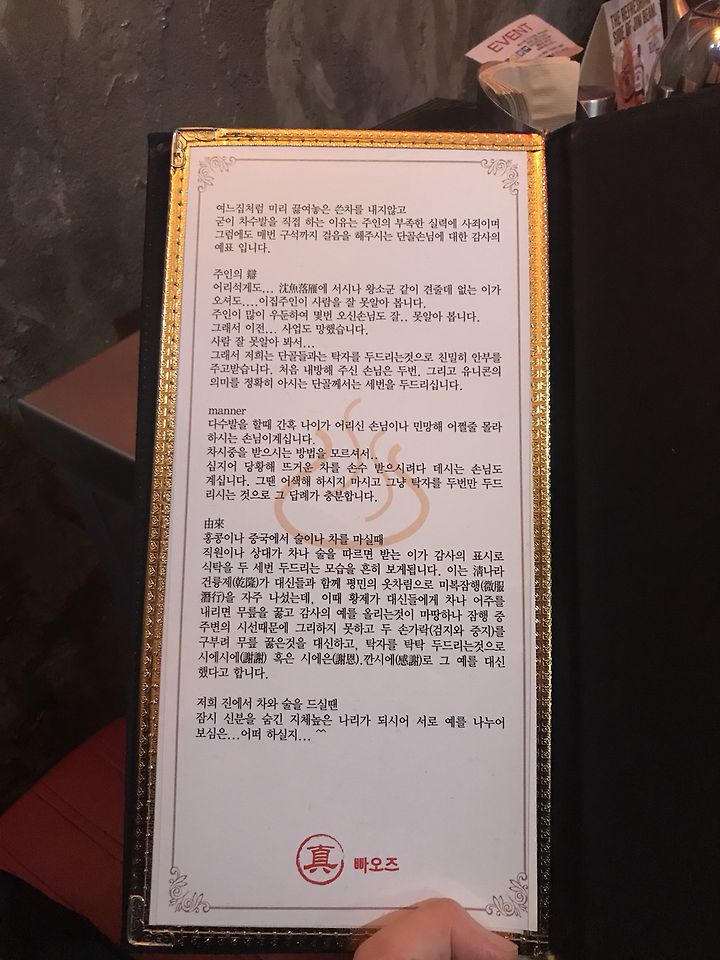 EVENT
여느집처럼 미리 끓여놓은 쓴차를 내지않고
굳이 차수발을 직접 하는 이유는 주인의 부족한 실력에 사죄이며
그럼에도 매번 구석까지 걸음을 해주시는 단골손님에 대한 감사의
예표 입니다.
주인의 辯
어리석게도... 沈魚落雁에 서시나 왕소군 같이 견줄데 없는 이가
오셔도....이집주인이 사람을 잘 못알아 봅니다.
주인이 많이 우둔하여 몇번 오신손님도 잘.. 못알아 봅니다.
그래서 이전... 사업도 망했습니다.
사람 잘 못알아 봐서...
그래서 저희는 단골들과는 탁자를 두드리는것으로 친밀히 안부를
주고받습니다. 처음 내방해 주신 손님은 두번, 그리고 유니콘의
의미를 정확히 아시는 단골께서는 세번을 두드리십니다.
manner
다수발을 할때 간혹 나이가 어리신 손님이나 민망해 어쩔줄 몰라
하시는 손님이계십니다.
차시중을 받으시는 방법을 모르셔서..
심지어 당황해 뜨거운 차를 손수 받으시려다 데시는 손님도
계십니다. 그땐 어색해 하시지 마시고 그냥 탁자를 두번만 두드
리시는 것으로 그 답례가 충분합니다.
由來
홍콩이나 중국에서 술이나 차를 마실때
직원이나 상대가 차나 술을 따르면 받는 이가 감사의 표시로
식탁을 두 세번 두드리는 모습을 흔히 보게됩니다. 이는 淸나라
건륭제(乾隆)가 대신들과 함께 평민의 옷차림으로 미복잠행(微服
潛行)을 자주 나섰는데, 이때 황제가 대신들에게 차나 어주를
내리면 무릎을 꿇고 감사의 예를 올리는것이 마땅하나 잠행 중
주변의 시선때문에 그리하지 못하고 두 손가락(검지와 중지)를
구부려 무릎 꿇은것을 대신하고, 탁자를 탁탁 두드리는것으로
시에시에(謝謝) 혹은 시에은(謝恩).깐시에(感謝)로 그 예를 대신
했다고 합니다.
저희 진에서 차와 술을 드실땐
잠시 신분을 숨긴 지체높은 나리가 되시어 서로 예를 나누어
보심은...어떠 하실지... ^^
真 빠오즈